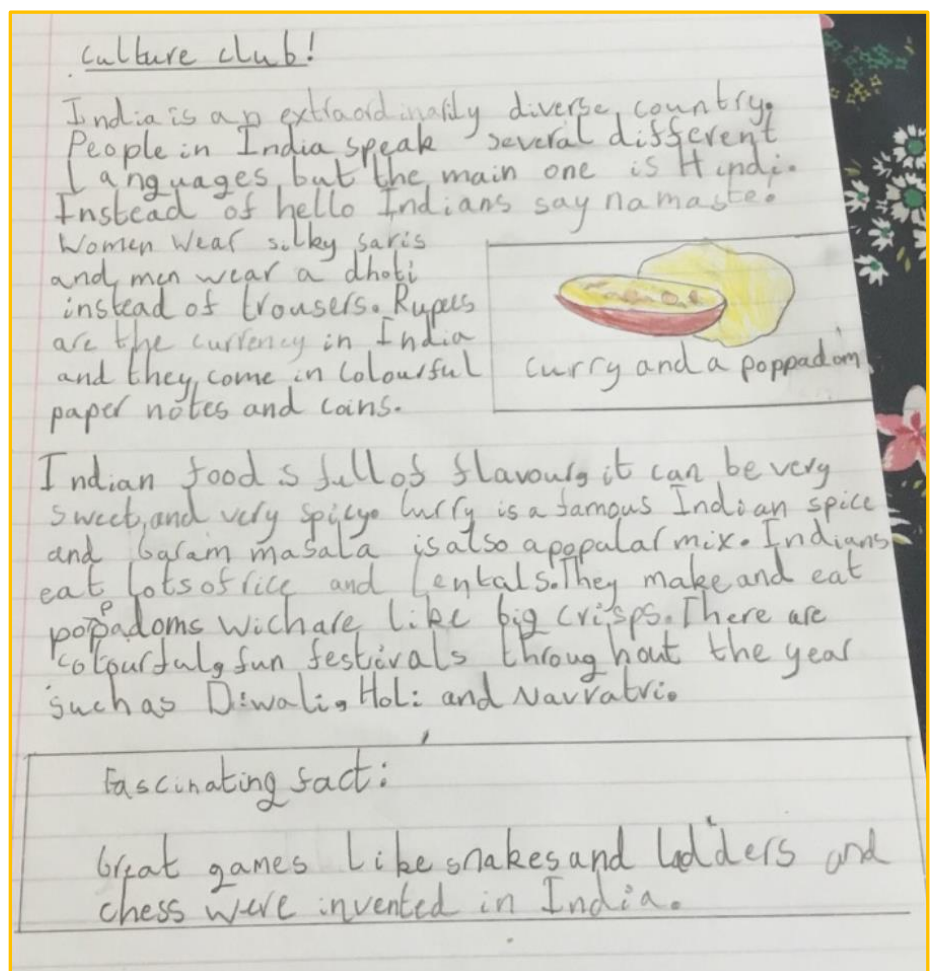 Culture club!
India is an extraordinarily diverse country.
People in India speak several different
Languages, but the main one is Hindi.
Instead of hello Indians say namaste.
Women wear silky saris
and men wear a dhoti
instead of trousers. Rupees
are the currency in India
and they come in Colourful
paper notes and coins.
curry and a poppadom
Indian food is full of flavour, it can be very
sweet, and very spicy. Curry is a famous Indian spice
and Garam masala is also a popular mix. Indians
eat lots of rice and Lentals. They make and eat
poppadoms wich are like big crisps. There are
colourful, fun festivals throughout the year
such as Diwali, Holi and Navratri.
Fascinating fact:
Great games like snakes and ladders and
chess were invented in India.